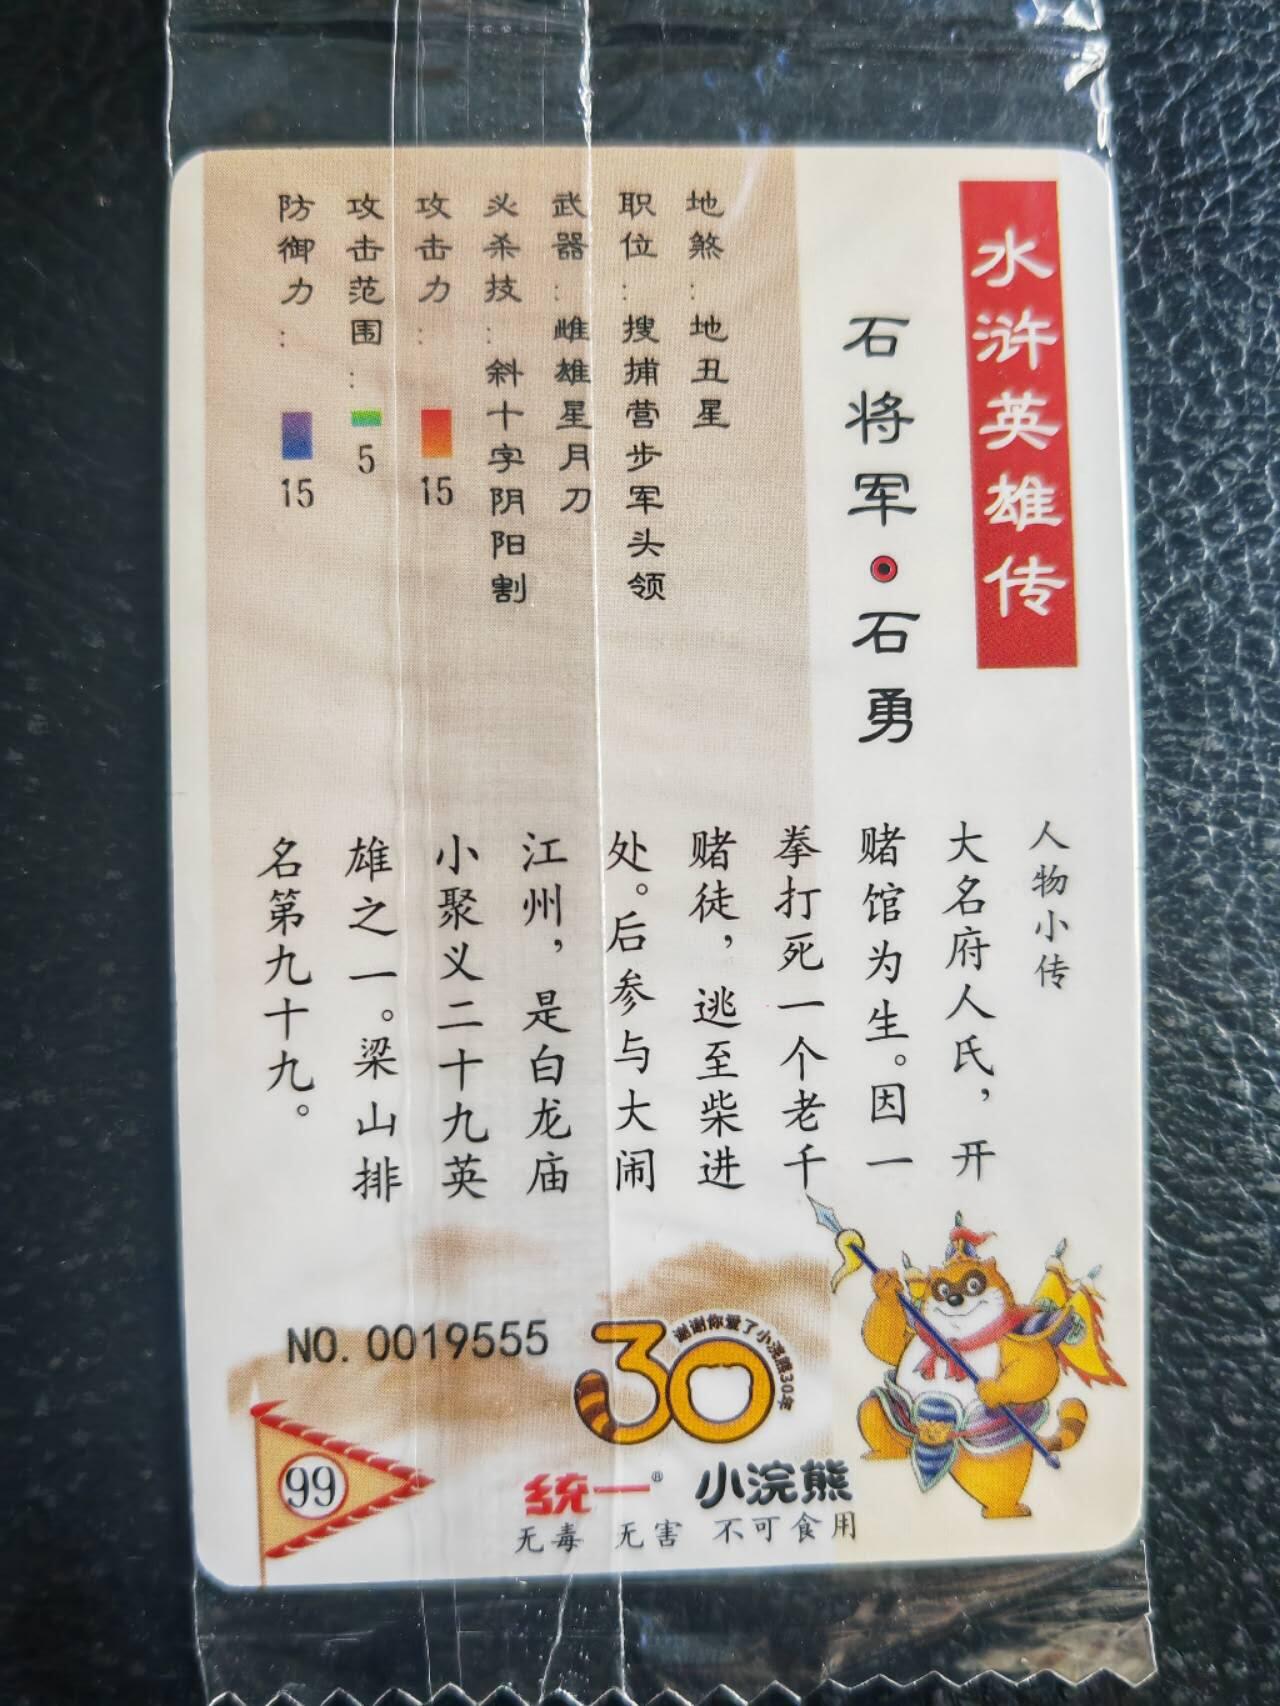 水浒英雄传
石将军·石勇
地煞：地丑星
职位：搜捕营步军头领
武器：雌雄星月刀
必杀技：斜十字阴阳割
攻击力：15
攻击范围：5
防御力：15
人物小传
大名府人氏，开
赌馆为生。因一
拳打死一个老千
赌徒，逃至柴进
处。后参与大闹
江州，是白龙庙
小聚义二十九英
雄之一。梁山排
名第九十九。
NO.0019555
谢谢你爱了小浣熊30年
30
99
统一® 小浣熊
无毒 无害 不可食用